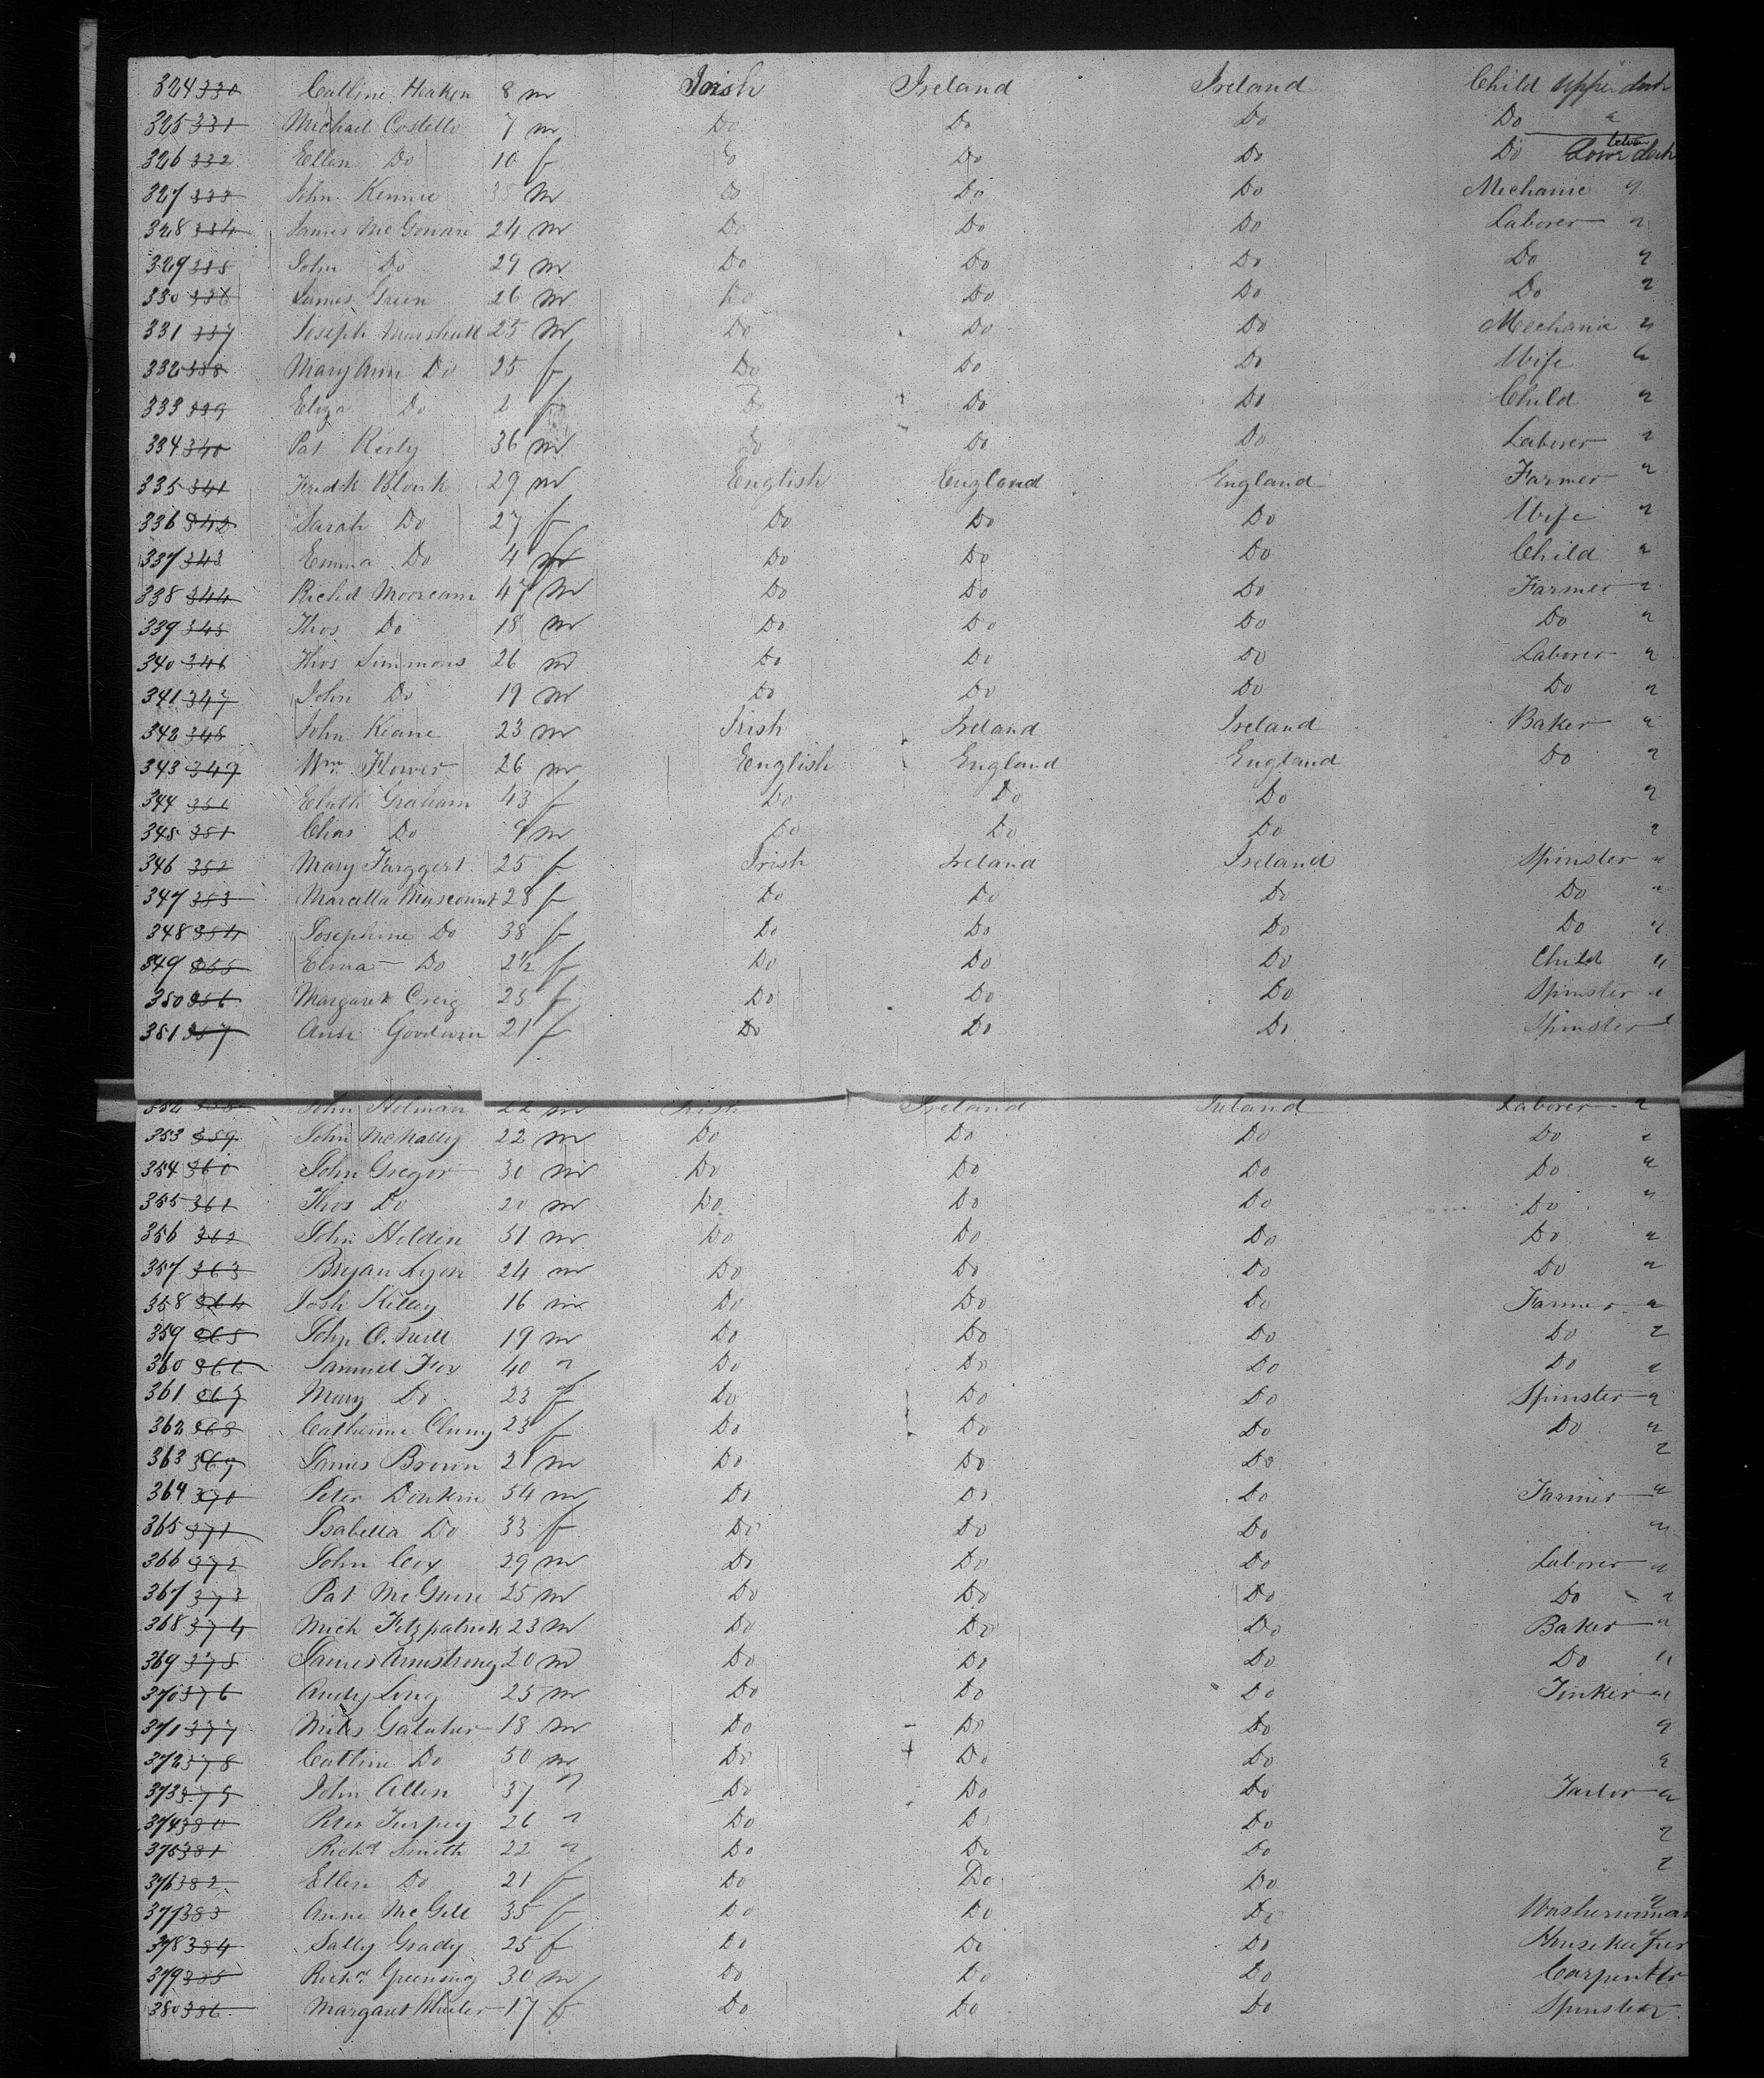 324 330 Catline Heaken 8 m Irish Ireland Ireland Child upper deck
325 331 Michael Costello 7 m Do Do Do Do "
326 332 Ellen Do 10 f Do Do Do Do Lower deck
327 333 John Kennie 38 m Do Do Do Mechanic "
328 334 James McGowan 24 m Do Do Do Laborer "
329 335 John Do 29 m Do Do Do Do "
330 336 James Green 26 m Do Do Do Do "
331 337 Joseph Marshall 25 m Do Do Do Mechanic "
332 338 Mary Ann Do 25 f Do Do Do Wife "
333 339 Eliza Do 2 f Do Do Do Child "
334 340 Pat Reily 36 m Do Do Do Laborer "
335 341 Fredk Blonk 29 m English England England Farmer "
336 342 Sarah Do 27 f Do Do Do Wife "
337 343 Emma Do 4 f Do Do Do Child "
338 344 Richd Mooream 47 m Do Do Do Farmer "
339 345 Thos Do 18 m Do Do Do Do "
340 346 Thos Simmons 26 m Do Do Do Laborer "
341 347 John Do 19 m Do Do Do Do "
342 348 John Keane 23 m Irish Ireland Ireland Baker "
343 349 Wm Flower 26 m English England England Do "
344 350 Elizth Graham 43 f Do Do Do "
345 351 Chas Do 9 m Do Do Do "
346 352 Mary Farggert 25 f Irish Ireland Ireland Spinster "
347 353 Marcella Muscount 28 f Do Do Do Do "
348 354 Josephine Do 38 f Do Do Do Do "
349 355 Elina Do 2½ f Do Do Do Child "
350 356 Margaret Creig 25 f Do Do Do Spinster "
351 357 Ann Goodwin 21 f Do Do Do Spinster "
352 358 John Holman 22 m Irish Ireland Ireland Laborer "
353 359 John McNally 22 m Do Do Do Do "
354 360 John Gregor 30 m Do Do Do Do "
355 361 Thos Do 20 m Do Do Do Do "
356 362 John Holden 51 m Do Do Do Do "
357 363 Bryan Lyon 24 m Do Do Do Do "
358 364 Josh Killey 16 m Do Do Do Farmer "
359 365 John O.Neill 19 m Do Do Do Do "
360 366 Samuel Fox 40 " Do Do Do Do "
361 367 Mary Do 23 f Do Do Do Spinster "
362 368 Catherine Cluny 23 f Do Do Do Do "
363 369 James Brown 21 m Do Do Do "
364 370 Peter Donkin 54 m Do Do Do Farmer "
365 371 Isabella Do 33 f Do Do Do "
366 372 John Cox 29 m Do Do Do Laborer "
367 373 Pat McGuire 25 m Do Do Do Do "
368 374 Mich Fitzpatrick 23 m Do Do Do Baker "
369 375 James Armstrong 20 m Do Do Do Do "
370 376 Andy Long 25 m Do Do Do Tinker "
371 377 Miles Galaher 18 m Do Do Do "
372 378 Catline Do 50 m Do Do Do "
373 379 John Allen 37 " Do Do Do Tailor "
374 380 Peter Turpey 26 " Do Do Do "
375 381 Richd Smith 22 " Do Do Do "
376 382 Ellen Do 21 f Do Do Do "
377 383 Anne McGill 35 f Do Do Do Washerwoman "
378 384 Sally Grady 25 f Do Do Do Housekeeper "
379 385 Richd Greening 30 m Do Do Do Carpenter
380 386 Margaret Wheeler 17 f Do Do Do Spinster "